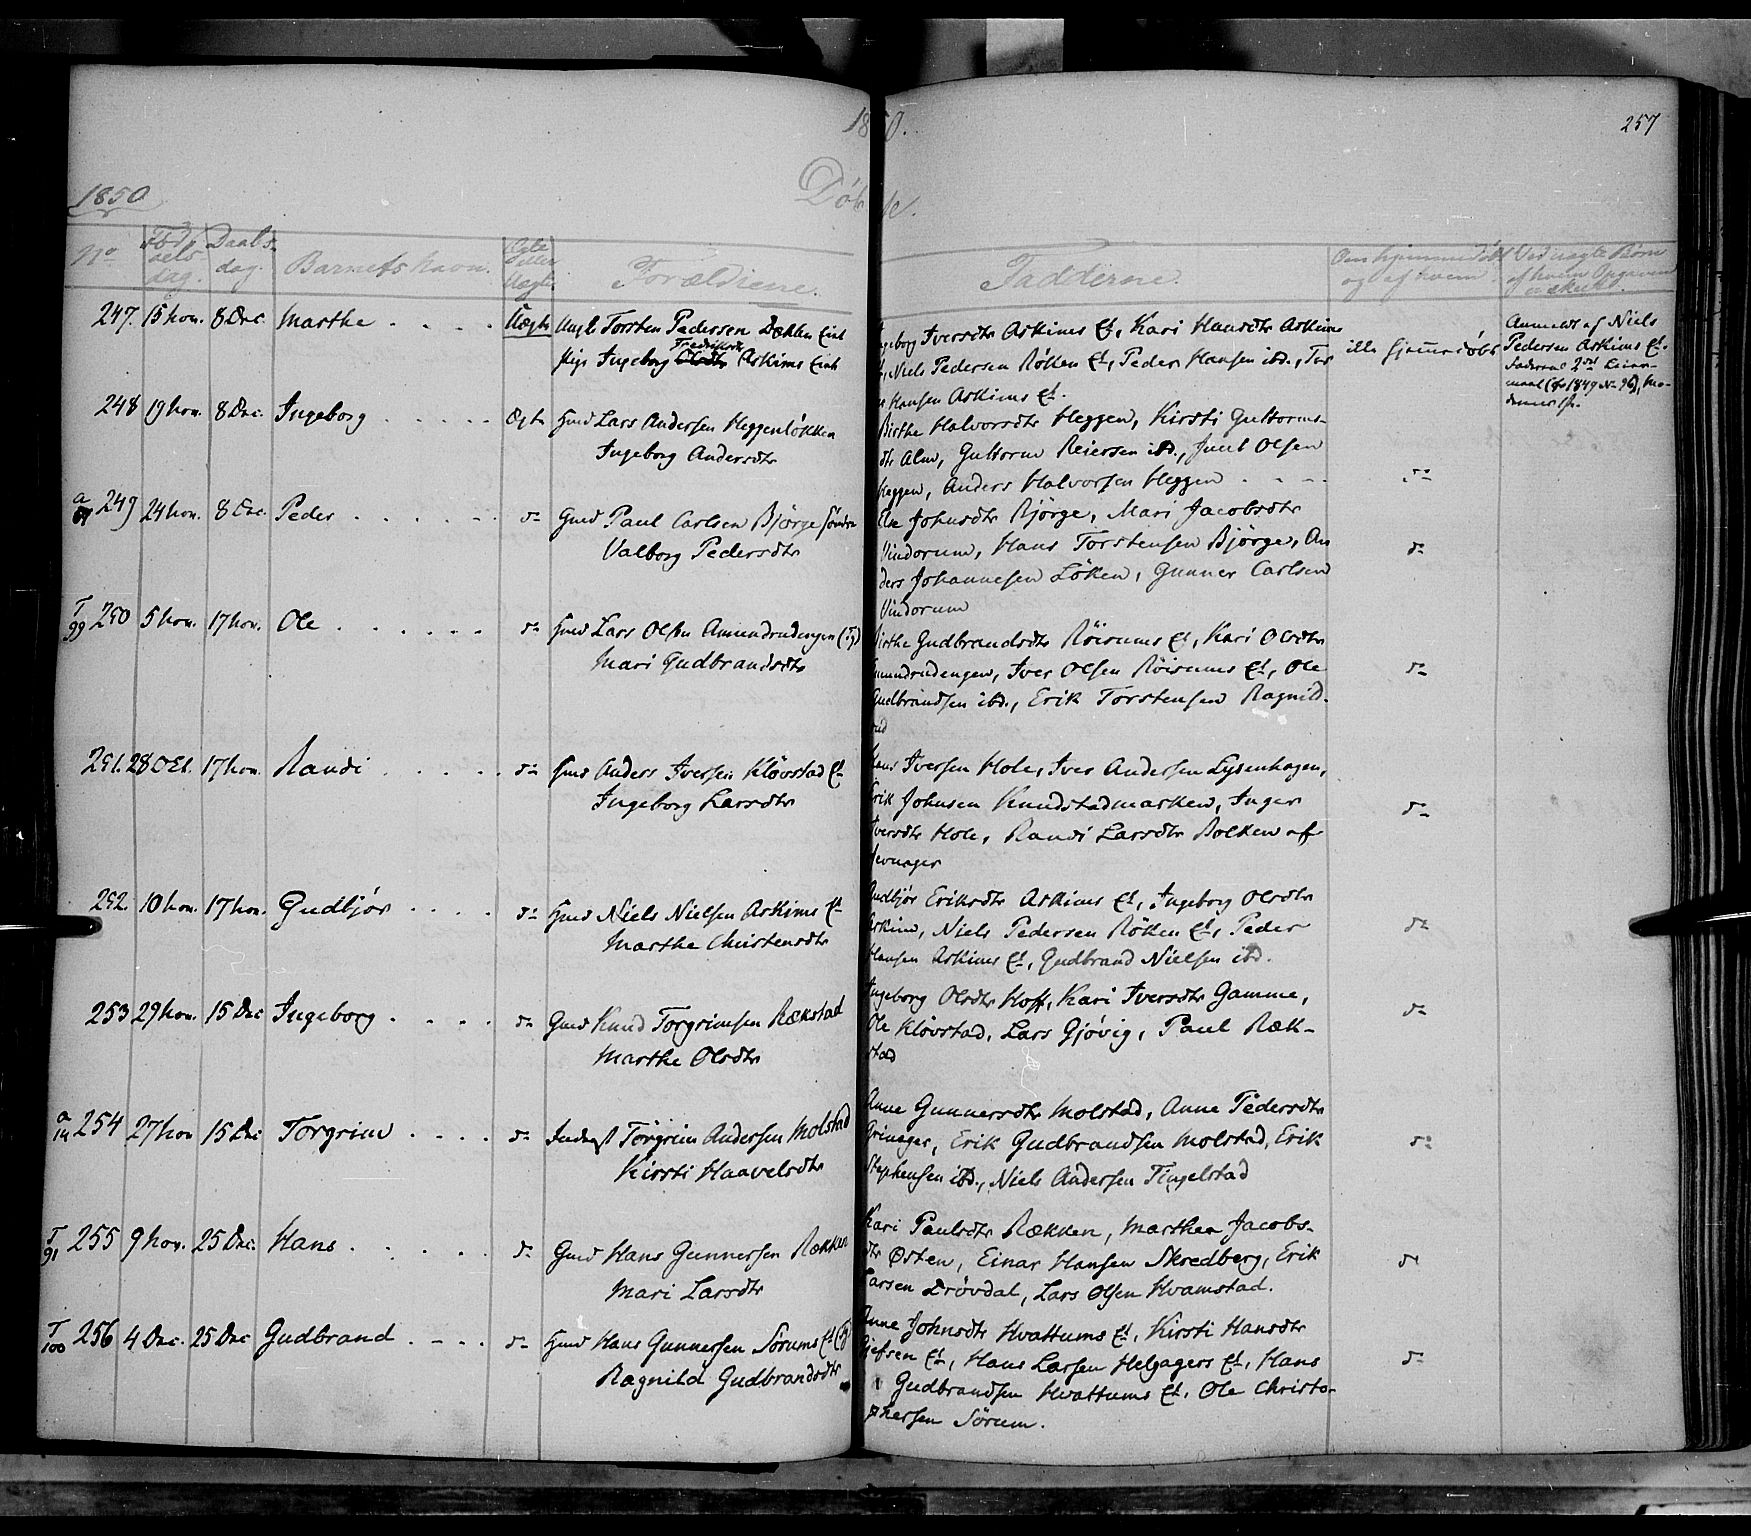 1850.
257
1850
Døbte.
No
Fødselsdag.
Daabsdag.
Barnets Navn.
Ægte eller Uægte
Forældrene.
Fadderne.
Om hjemmedøbt og af hvem
Ved uægte Børn af hvem Opgaven er skeet.
247. 15 Nov. 8 Dec. Marthe . . . . Uægte Ungk. Torsten Pedersen Dækken Eiet
Pige Ingeborg Fredriksdtr Askims Eiet
Ingeborg Iversdtr Askims Et., Kari Hansdtr Askims
Et, Niels Pedersen Røken Et, Peder Hansen ibd., Tor
Hansen Askims Et.
ikke hjemmedøbt
Anmeldt af Niels
Pedersen Askims Et.
Faderens 2det Leier-
maal (cfr 1849 No 96), Mo-
derens 1ste.
248 19 Nov. 8 Dec. Ingeborg . . . . . Ægte Husmd Lars Andersen Heggenløkken
Ingeborg Andersdtr
Birthe Halvorsdtr Heggen, Kirsti Guttorms-
dtr Alm, Guttorm Reiersen ibd., Juul Olsen
Heggen, Anders Halvorsen Heggen . . . do
a 249 24 Nov. 8 Dec. Peder . . . . . . do Gmd Paul Carlsen Bjørge søndre
Valborg Pedersdtr
Else Johnsdtr Bjørge, Mari Jacobsdtr
Vindorum, Hans Torstensen Bjørge, An
ders Johannesen Løken, Gunner Carlsen
Vindorum
do
T 99 250 5 Nov. 17 Nov. Ole . . . . . . do Hmd Lars Olsen Amundrudengen (Tg)
Mari Gudbrandsdtr
Birthe Gudbrandsdtr Røisums Et, Kari Olsdtr
Amundrudengen, Iver Olsen Røisums Et, Ole
Gudbrandsen ibd., Erik Torstensen Ragnild-
rud
do
251. 28 Oct. 17 Nov. Randi . . . . . do Hmd Anders Iversen Kløvstad Et
Ingeborg Larsdtr
Hans Iversen Hole, Iver Andersen Lysenhagen,
Erik Johnsen Knudstadmarken, Inger
Iversdtr Hole, Randi Larsdtr Bolken af
Jevnager
do
252. 10 Nov. 17 Nov. Gudbjør . . . . do Hmd Niels Nielsen Askims Et
Marthe Christensdtr
Gudbjør Eriksdtr Askims Et, Ingeborg Olsdtr
Askim, Niels Pedersen Røken Et, Peder
Hansen Askims Et, Gudbrand Nielsen ibd.
do
253 29 Nov. 15 Dec Ingeborg . . . . do Gmd Knud Torgrimsen Rækstad
Marthe Olsdtr
Ingeborg Olsdtr Hoff, Kari Iversdtr Gamme,
Ole Kløvstad, Lars Gjøvig, Paul Ræk-
stad
do
a 14 254 27 Nov 15 Dec Torgrim . . . . do Inderst Torgrim Andersen Molstad
Kirsti Haavelsdtr
Anne Gunnersdtr Molstad, Anne Pedersdtr
Grinager, Erik Gudbrandsen Molstad, Erik
Stephensen ibd., Niels Andersen Tingelstad
do
T 91 255 9 Nov. 25 Dec. Hans . . . . . do Gmd Hans Gunnersen Rækken
Mari Larsdtr
Kari Paulsdtr Rækken, Marthea Jacobs-
dtr Østen, Einar Hansen Skredberg, Erik
Larsen Drøvdal, Lars Olsen Hvamstad.
do
T 100 256 4 Dec. 25 Dec Gudbrand . . . . do Hmd Hans Gunnersen Sørums Et (Tg)
Ragnild Gudbrandsdtr
Anne Johnsdtr Hvattums Et, Kirsti Hansdtr
Gjefsen Et., Hans Larsen Helgagers Et, Hans
Gudbrandsen Hvattums Et. Ole Christo-
phersen Sørum.
do